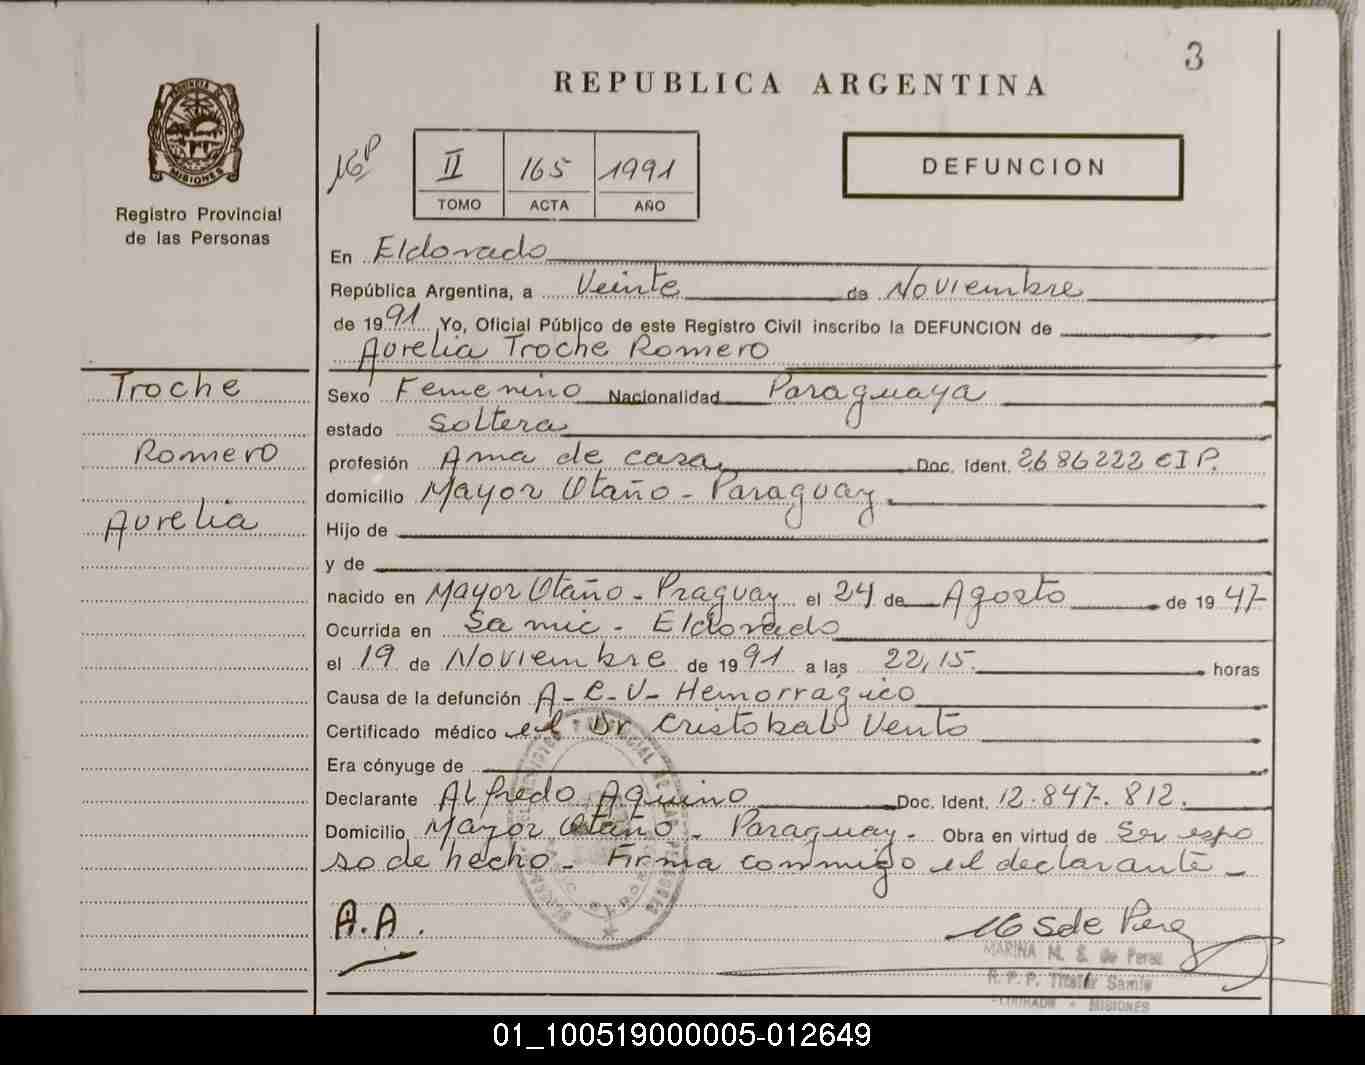 3
REPUBLICA ARGENTINA
MISIONES
Registro Provincial
de las Personas
II 165 1991
TOMO ACTA AÑO
DEFUNCION
En Eldorado
República Argentina, a Veinte de Noviembre
de 1991 Yo, Oficial Público de este Registro Civil inscribo la DEFUNCION de
Aurelia Troche Romero
Troche
Romero
Aurelia
Sexo Femenino Nacionalidad Paraguaya
estado Soltera
profesión Ama de casa Doc. Ident. 2686222 CIP.
domicilio Mayor Otaño - Paraguay
Hijo de
y de
nacido en Mayor Otaño - Praguay el 24 de Agosto de 1947
Ocurrida en Samic - Eldorado
el 19 de Noviembre de 1991 a las 22,15 horas
Causa de la defunción A-C-V- Hemorragico
Certificado médico el Dr Cristobal Vento
Era cónyuge de
Declarante Alfredo Aquino Doc. Ident. 12.847.812.
Domicilio Mayor Otaño - Paraguay - Obra en virtud de Ser espo
so de hecho - Firma conmigo el declarante -
A.A.
MSde Perez
MARINA M. S. de Perez
R. P. P. Titular Samic
ELDORADO - MISIONES
01_100519000005-012649